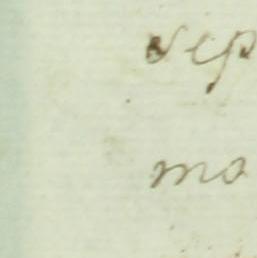 sep
mo